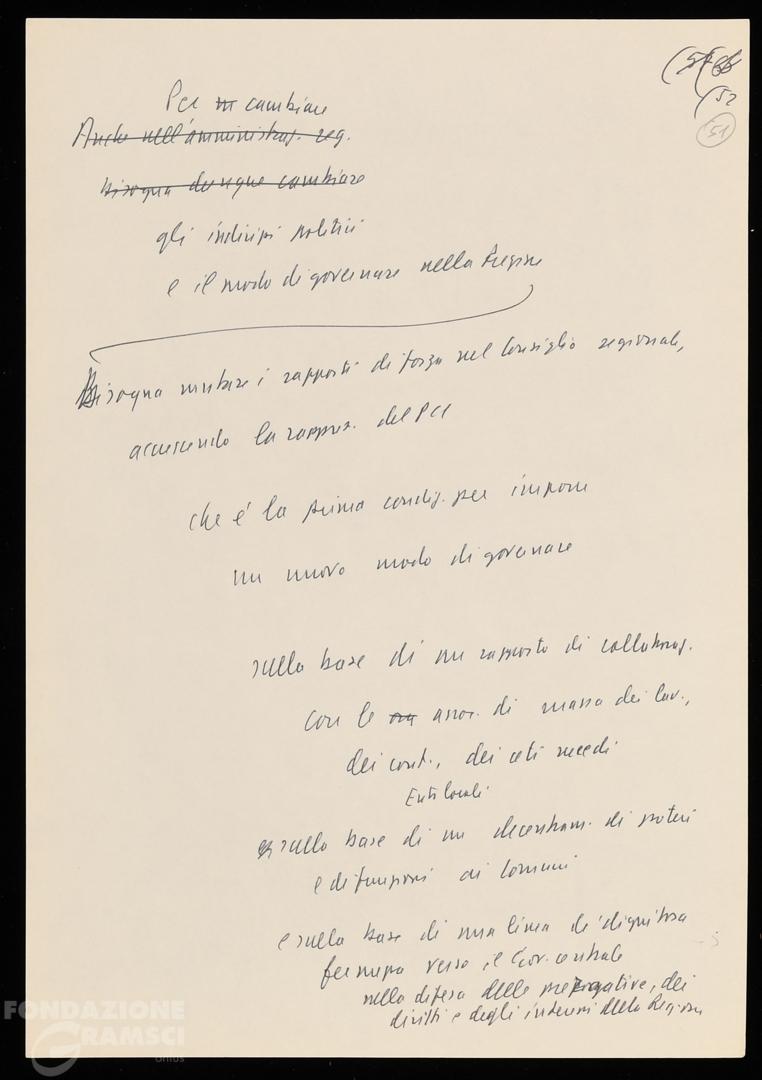 Per cambiare
Anche nell'amministraz. reg.
Bisogna dunque cambiare
gli indirizzi politici
e il modo di governare nella Regione
Bisogna mutare i rapporti di forza nel Consiglio regionale,
accrescendo la rappres. del PCI
che è la prima condiz. per imporre
un nuovo modo di governare
sulla base di un rapporto di collaboraz.
con le assoc. di massa dei lav.,
dei cont., dei ceti medi
Enti locali
sulla base di un decentram. di poteri
e di funzioni ai Comuni
e sulla base di una linea di dignitosa
fermezza verso il Gov. centrale
nella difesa delle prerogative, dei
diritti e degli interessi della Regione
52
51
FONDAZIONE
GRAMSCI
onlus